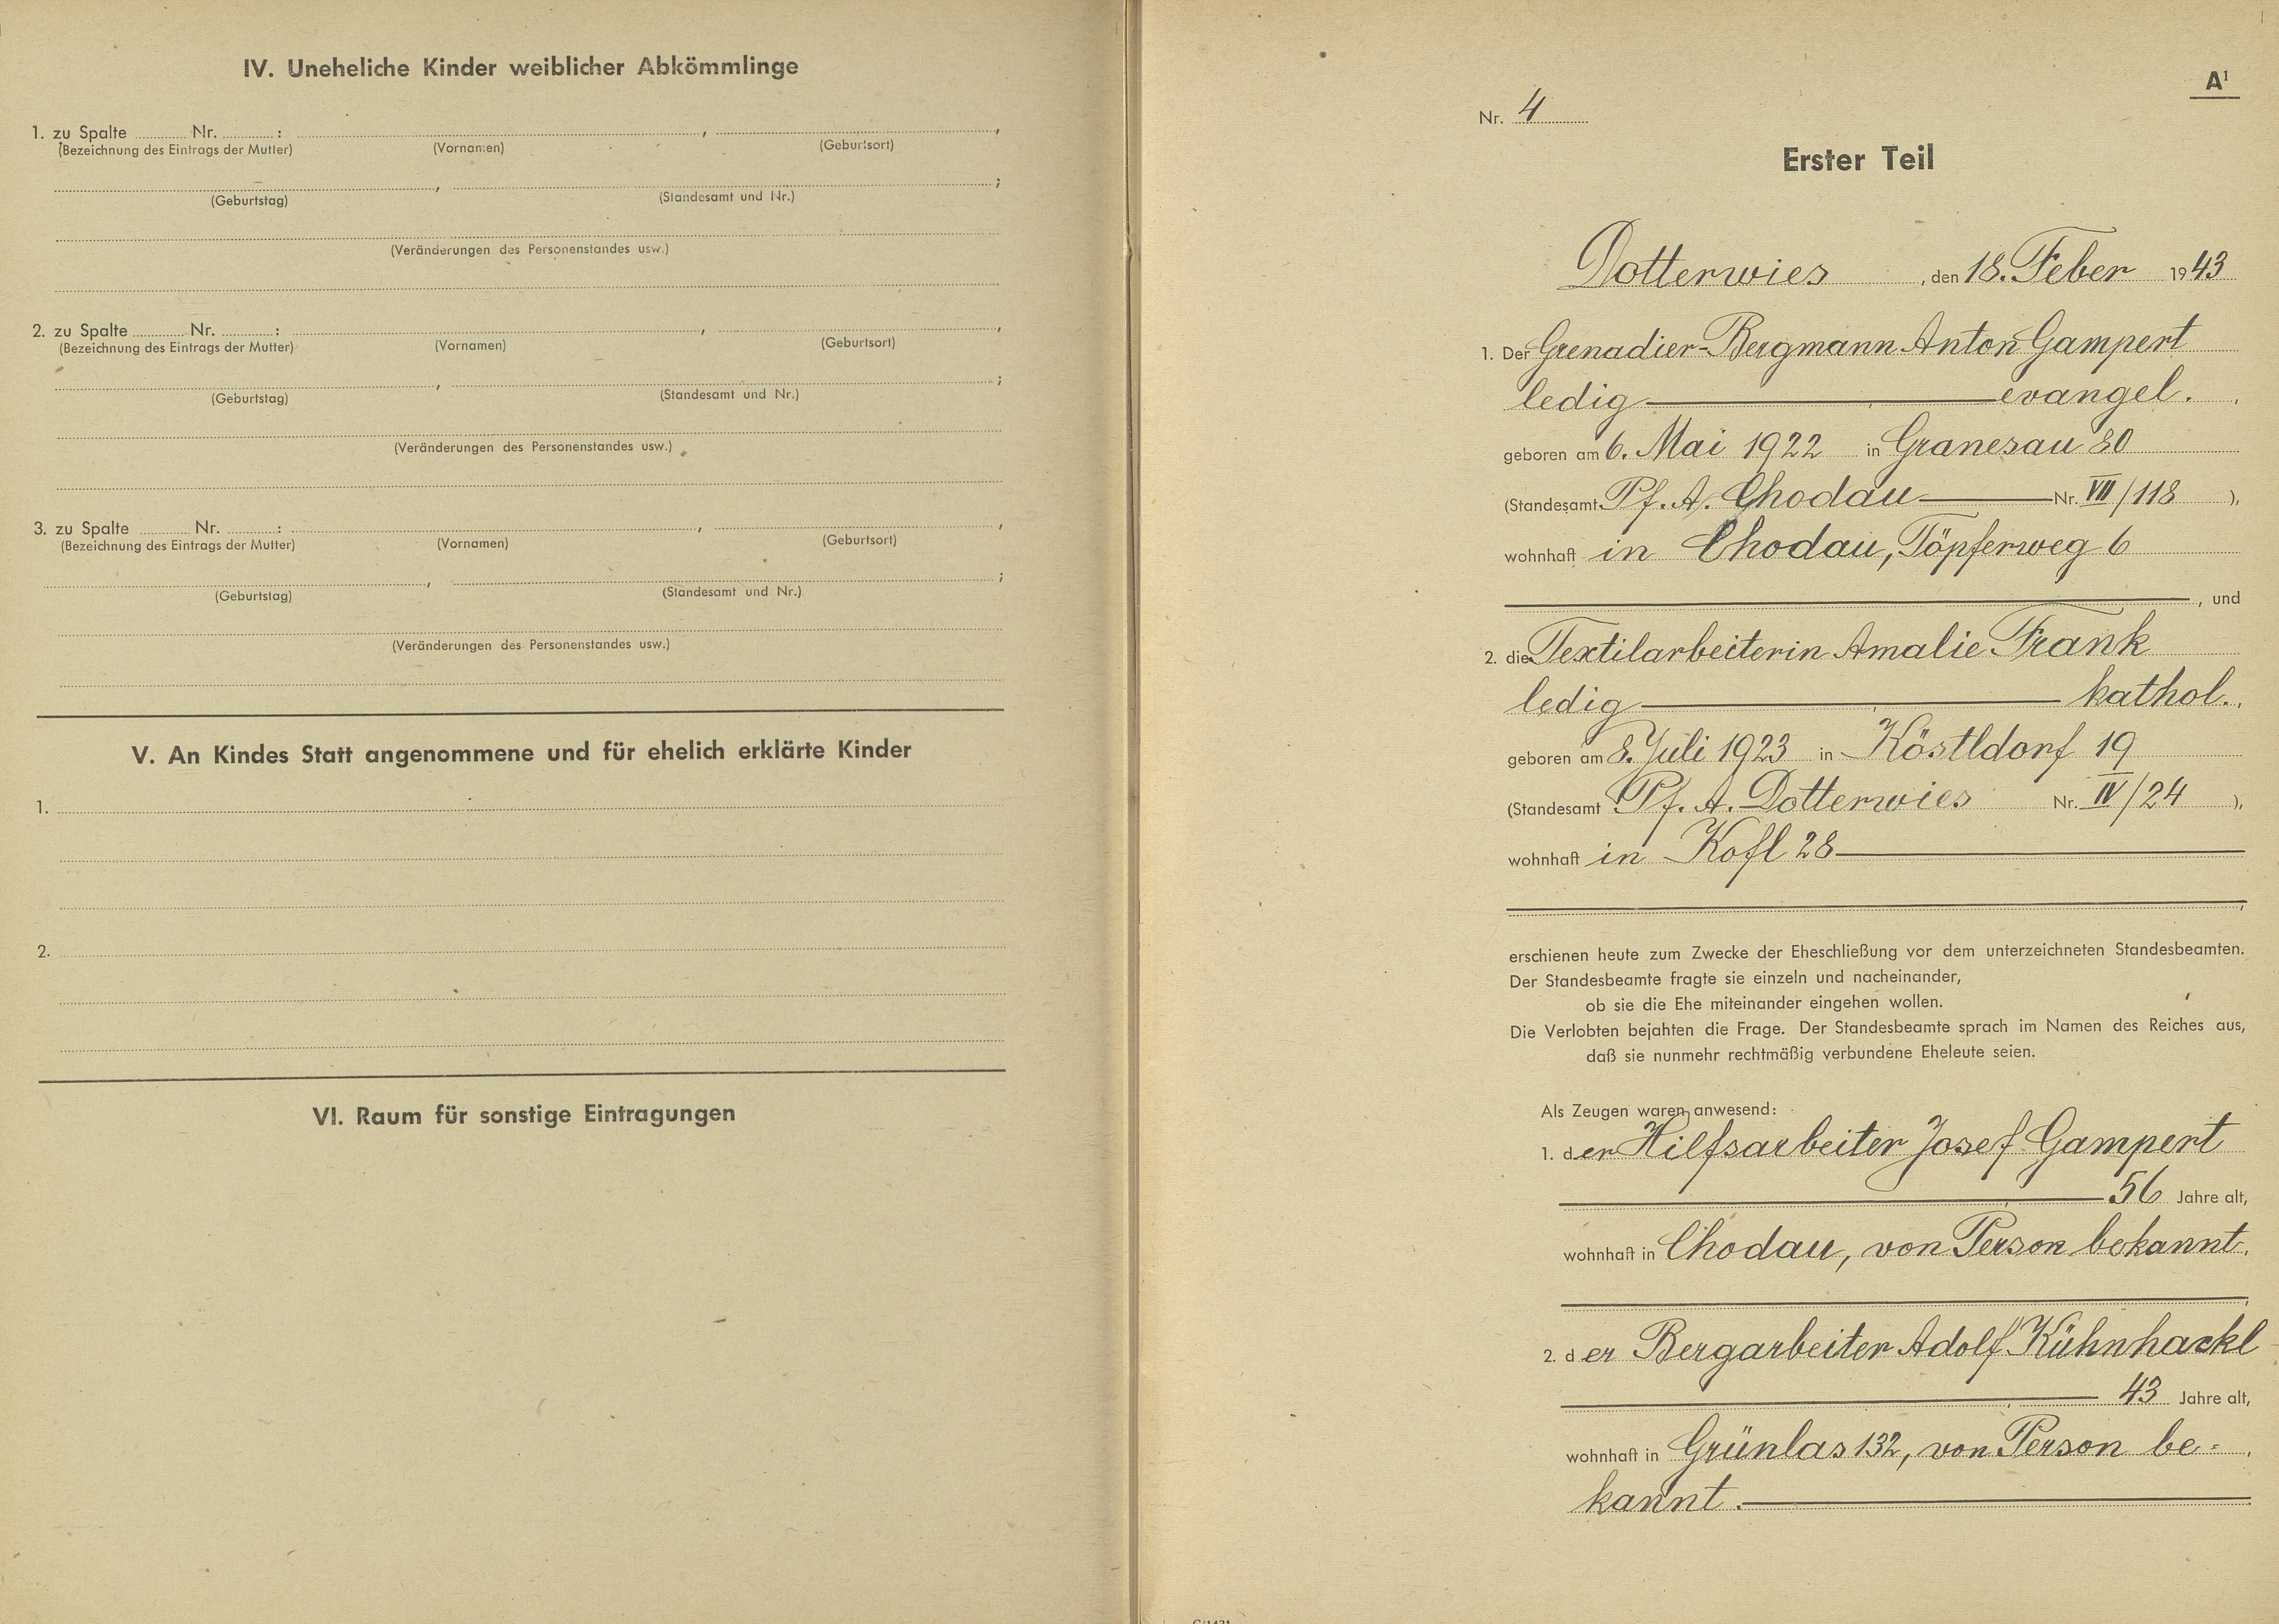 IV. Uneheliche Kinder weiblicher Abkömmlinge
1. zu Spalte Nr. : , ,
(Bezeichnung des Eintrags der Mutter) (Vornamen) (Geburtsort)
, ;
(Geburtstag) (Standesamt und Nr.)
(Veränderungen des Personenstandes usw.)
2. zu Spalte Nr. : , ,
(Bezeichnung des Eintrags der Mutter) (Vornamen) (Geburtsort)
, ;
(Geburtstag) (Standesamt und Nr.)
(Veränderungen des Personenstandes usw.)
3. zu Spalte Nr. : , ,
(Bezeichnung des Eintrags der Mutter) (Vornamen) (Geburtsort)
, ;
(Geburtstag) (Standesamt und Nr.)
(Veränderungen des Personenstandes usw.)
V. An Kindes Statt angenommene und für ehelich erklärte Kinder
1.
2.
VI. Raum für sonstige Eintragungen
A1
Nr. 4
Erster Teil
Dotterwies, den 18. Feber 1943
1. Der Grenadier-Bergmann Anton Gampert
ledig, evangel.,
geboren am 6. Mai 1922 in Granesau 80
(Standesamt Pf. A. Chodau Nr. VII/118),
wohnhaft in Chodau, Töpferweg 6
, und
2. die Textilarbeiterin Amalie Frank
ledig, kathol.,
geboren am 8. Juli 1923 in Köstldorf 19
(Standesamt Pf. A. Dotterwies Nr. IV/24),
wohnhaft in Kofl 28
,
erschienen heute zum Zwecke der Eheschließung vor dem unterzeichneten Standesbeamten.
Der Standesbeamte fragte sie einzeln und nacheinander,
ob sie die Ehe miteinander eingehen wollen.
Die Verlobten bejahten die Frage. Der Standesbeamte sprach im Namen des Reiches aus,
daß sie nunmehr rechtmäßig verbundene Eheleute seien.
Als Zeugen waren anwesend:
1. der Hilfsarbeiter Josef Gampert
, 56 Jahre alt,
wohnhaft in Chodau, von Person bekannt.,
;
2. der Bergarbeiter Adolf Kühnhackl
, 43 Jahre alt,
wohnhaft in Grünlas 132, von Person be=,
kannt.